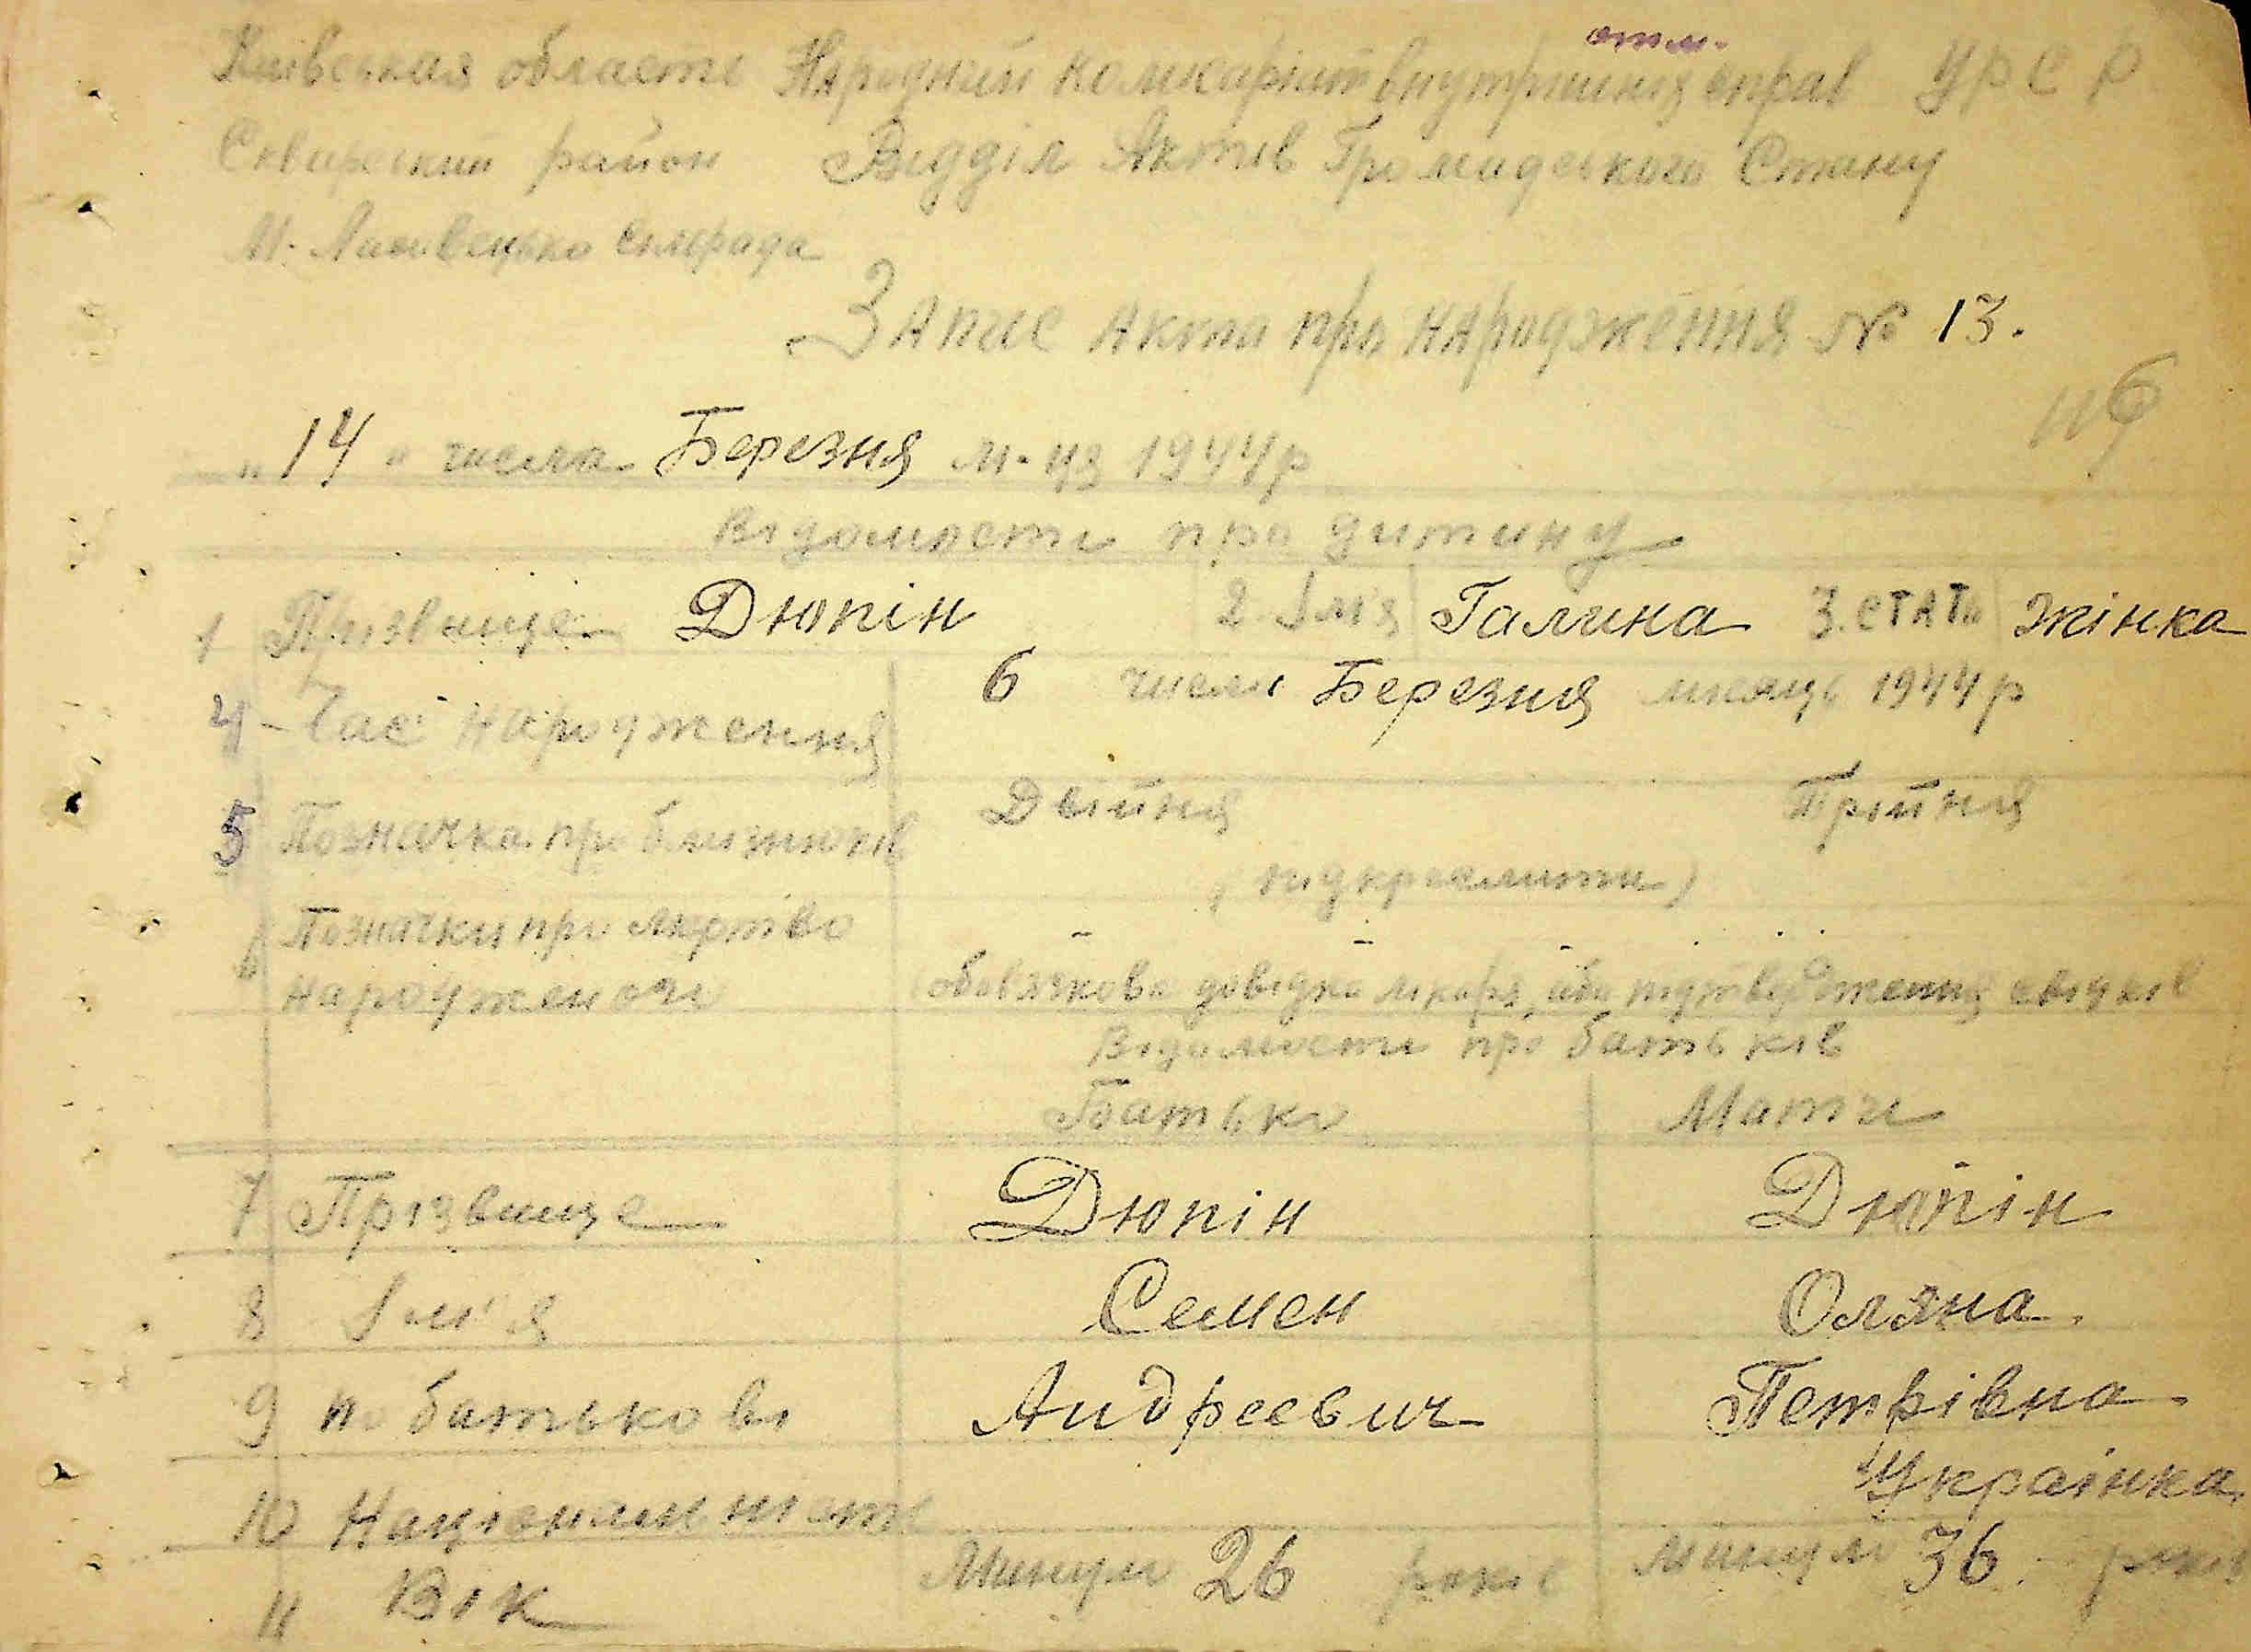 отм.
Київськая область Народний комісаріат внутрішніх справ УРСР
Сквирський район Відділ Актів Громадського Стану
М. сільрада
Запис акта про народження № 13.
116
"14" числа Березня м-ця 1944р
Відомости про дитину
1 Прізвище Дюпін 2. Імя Галина 3. СТАТЬ Жінка
4 - Час народження 6 числа Березня місяць 1944р
5 Позначка про близнюків Двійня Трійня
(підкреслити)
6 Позначки про мертво
народженость (обовязкова довідка лікаря, або підтвердження свідків
Відомости про батьків
Батько Мати
7 Прізвище Дюпін Дюпін
8 Ім'я Семен Оляна.
9 по батькові Андреевич Петрівна
10 Національность Украінка
11 Вік Минуло 26 років Минуло 36 років